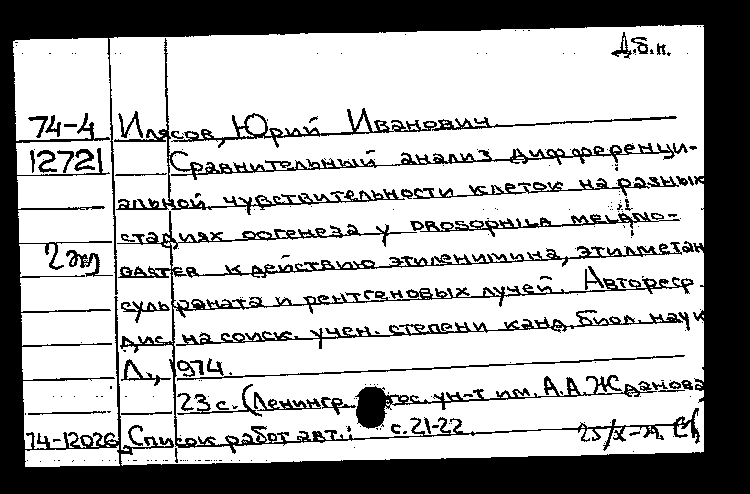 Д.б.н.
74-4 Илясов, Юрий Иванович.
12721 Сравнительный анализ дифференци-
альной чувствительности клеток на разных
стадиях оогенеза у DROSOPHILA MELANO-
2 эк GASTER к действию этиленимина, этилметан
сульфаната и рентгеновых лучей. Автореф.
дис. на соиск. учен. степени канд. биол. наук
Л., 1974.
23 с. (Ленингр. гос. ун-т им. А.А. Жданова
74-12026 Список работ авт.: с. 21-22. 25/X-74.